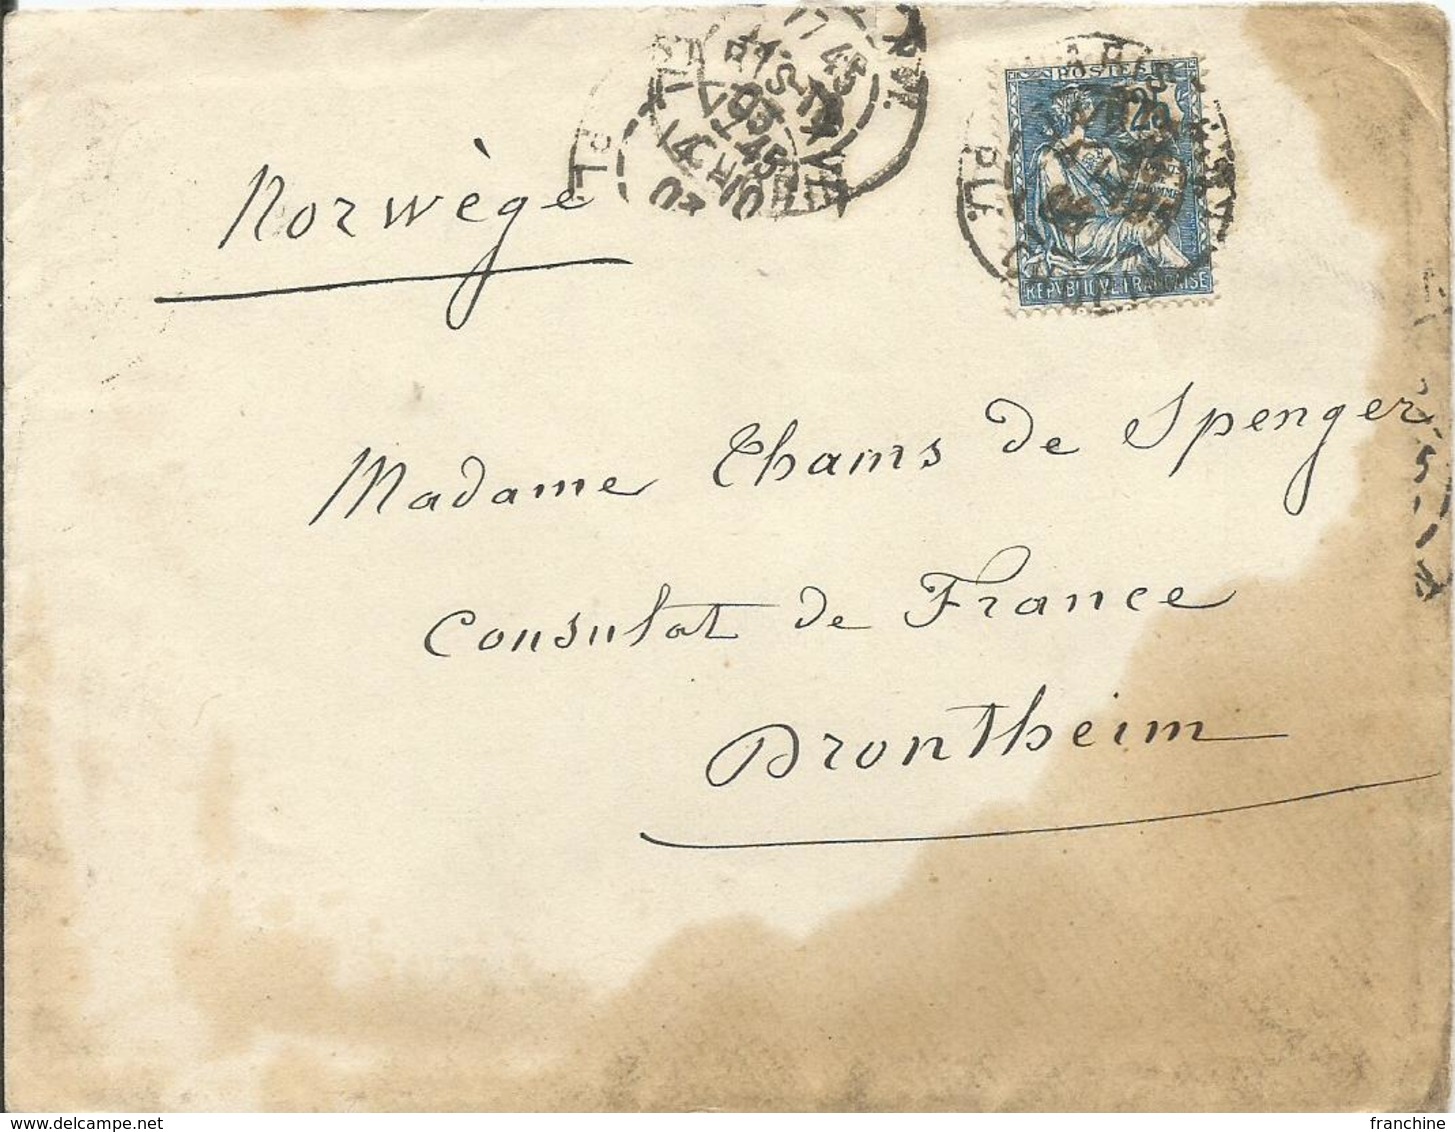 Norwège
POSTES
25
REPVBLIQVE FRANÇAISE
Madame Thams de Spenger
Consulat de France
Drontheim
delcampe.net
franchine